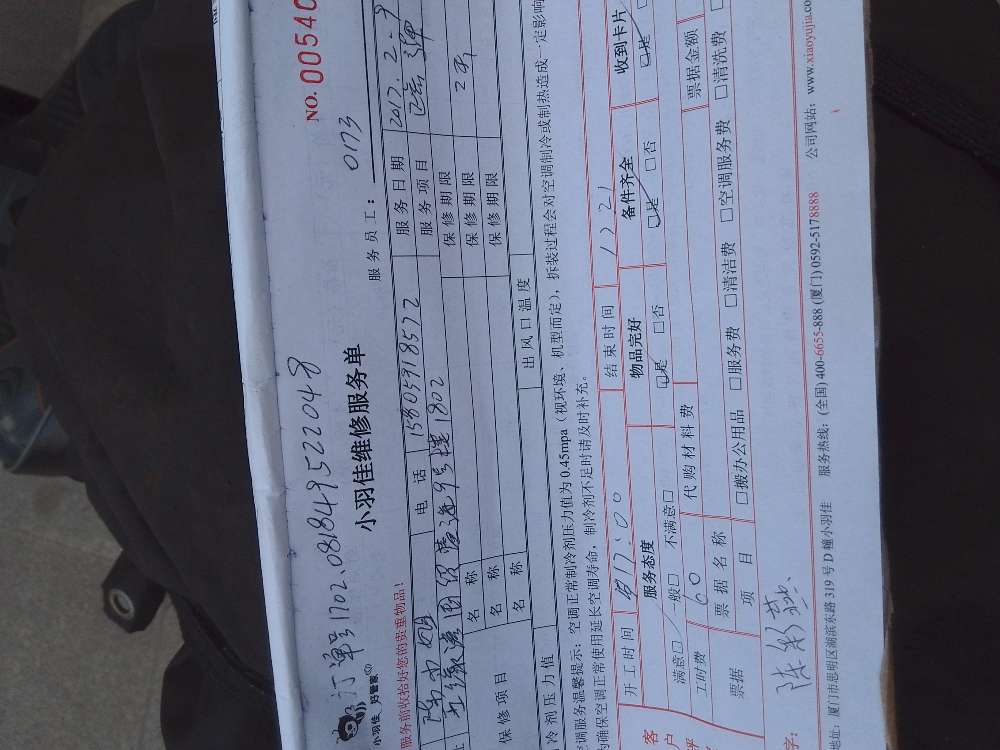 订单号1702.081849522048
NO. 00540
小羽佳 好管家
小羽佳维修服务单
服务员工: 0173
服务前收拾好您的贵重物品!
电话 15805918572 服务日期 2017.2.9
9号楼1802 服务项目
保修项目 名称 保修期限 2年
名称 保修期限
名称 保修期限
冷剂压力值 出风口温度
空调服务温馨提示:空调正常制冷剂压力值为0.45mpa(视环境、机型而定),拆装过程会对空调制冷或制热造成一定影响
为确保空调正常使用延长空调寿命,制冷剂不足时请及时补充。
开工时间 17:00 结束时间 1721
客户 服务态度 物品完好 备件齐全 收到卡片
满意□ 一般□ 不满意□ □是 □否 □是 □否 □是
工时费 60 代购材料费
票据 票据名称 票据金额
项目 □搬办公用品 □服务费 □清洁费 □空调服务费 □清洗费
字: 陈彩燕
地址:厦门市思明区湖滨东路319号D幢小羽佳 服务热线:(全国)400-6655-888(厦门)0592-5178888 公司网站:www.xiaoyujia.co